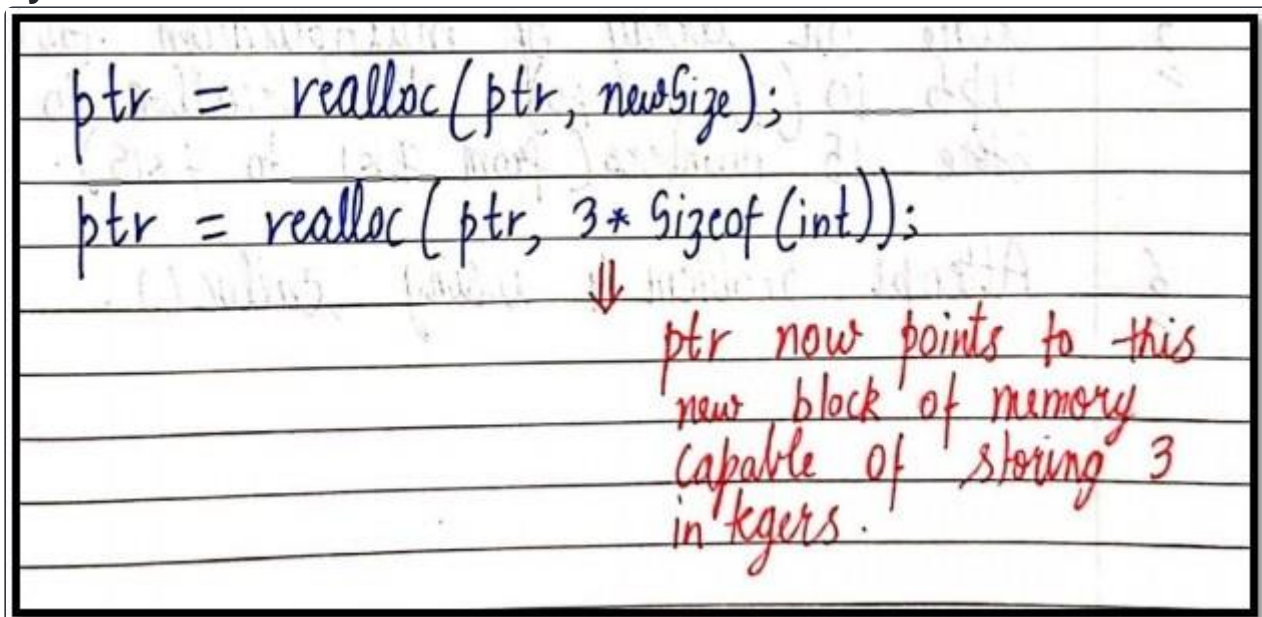 ptr = realloc(ptr, newSize);
ptr = realloc(ptr, 3* Sizeof(int));
⇓
ptr now points to this
new block of memory
capable of storing 3
integers.